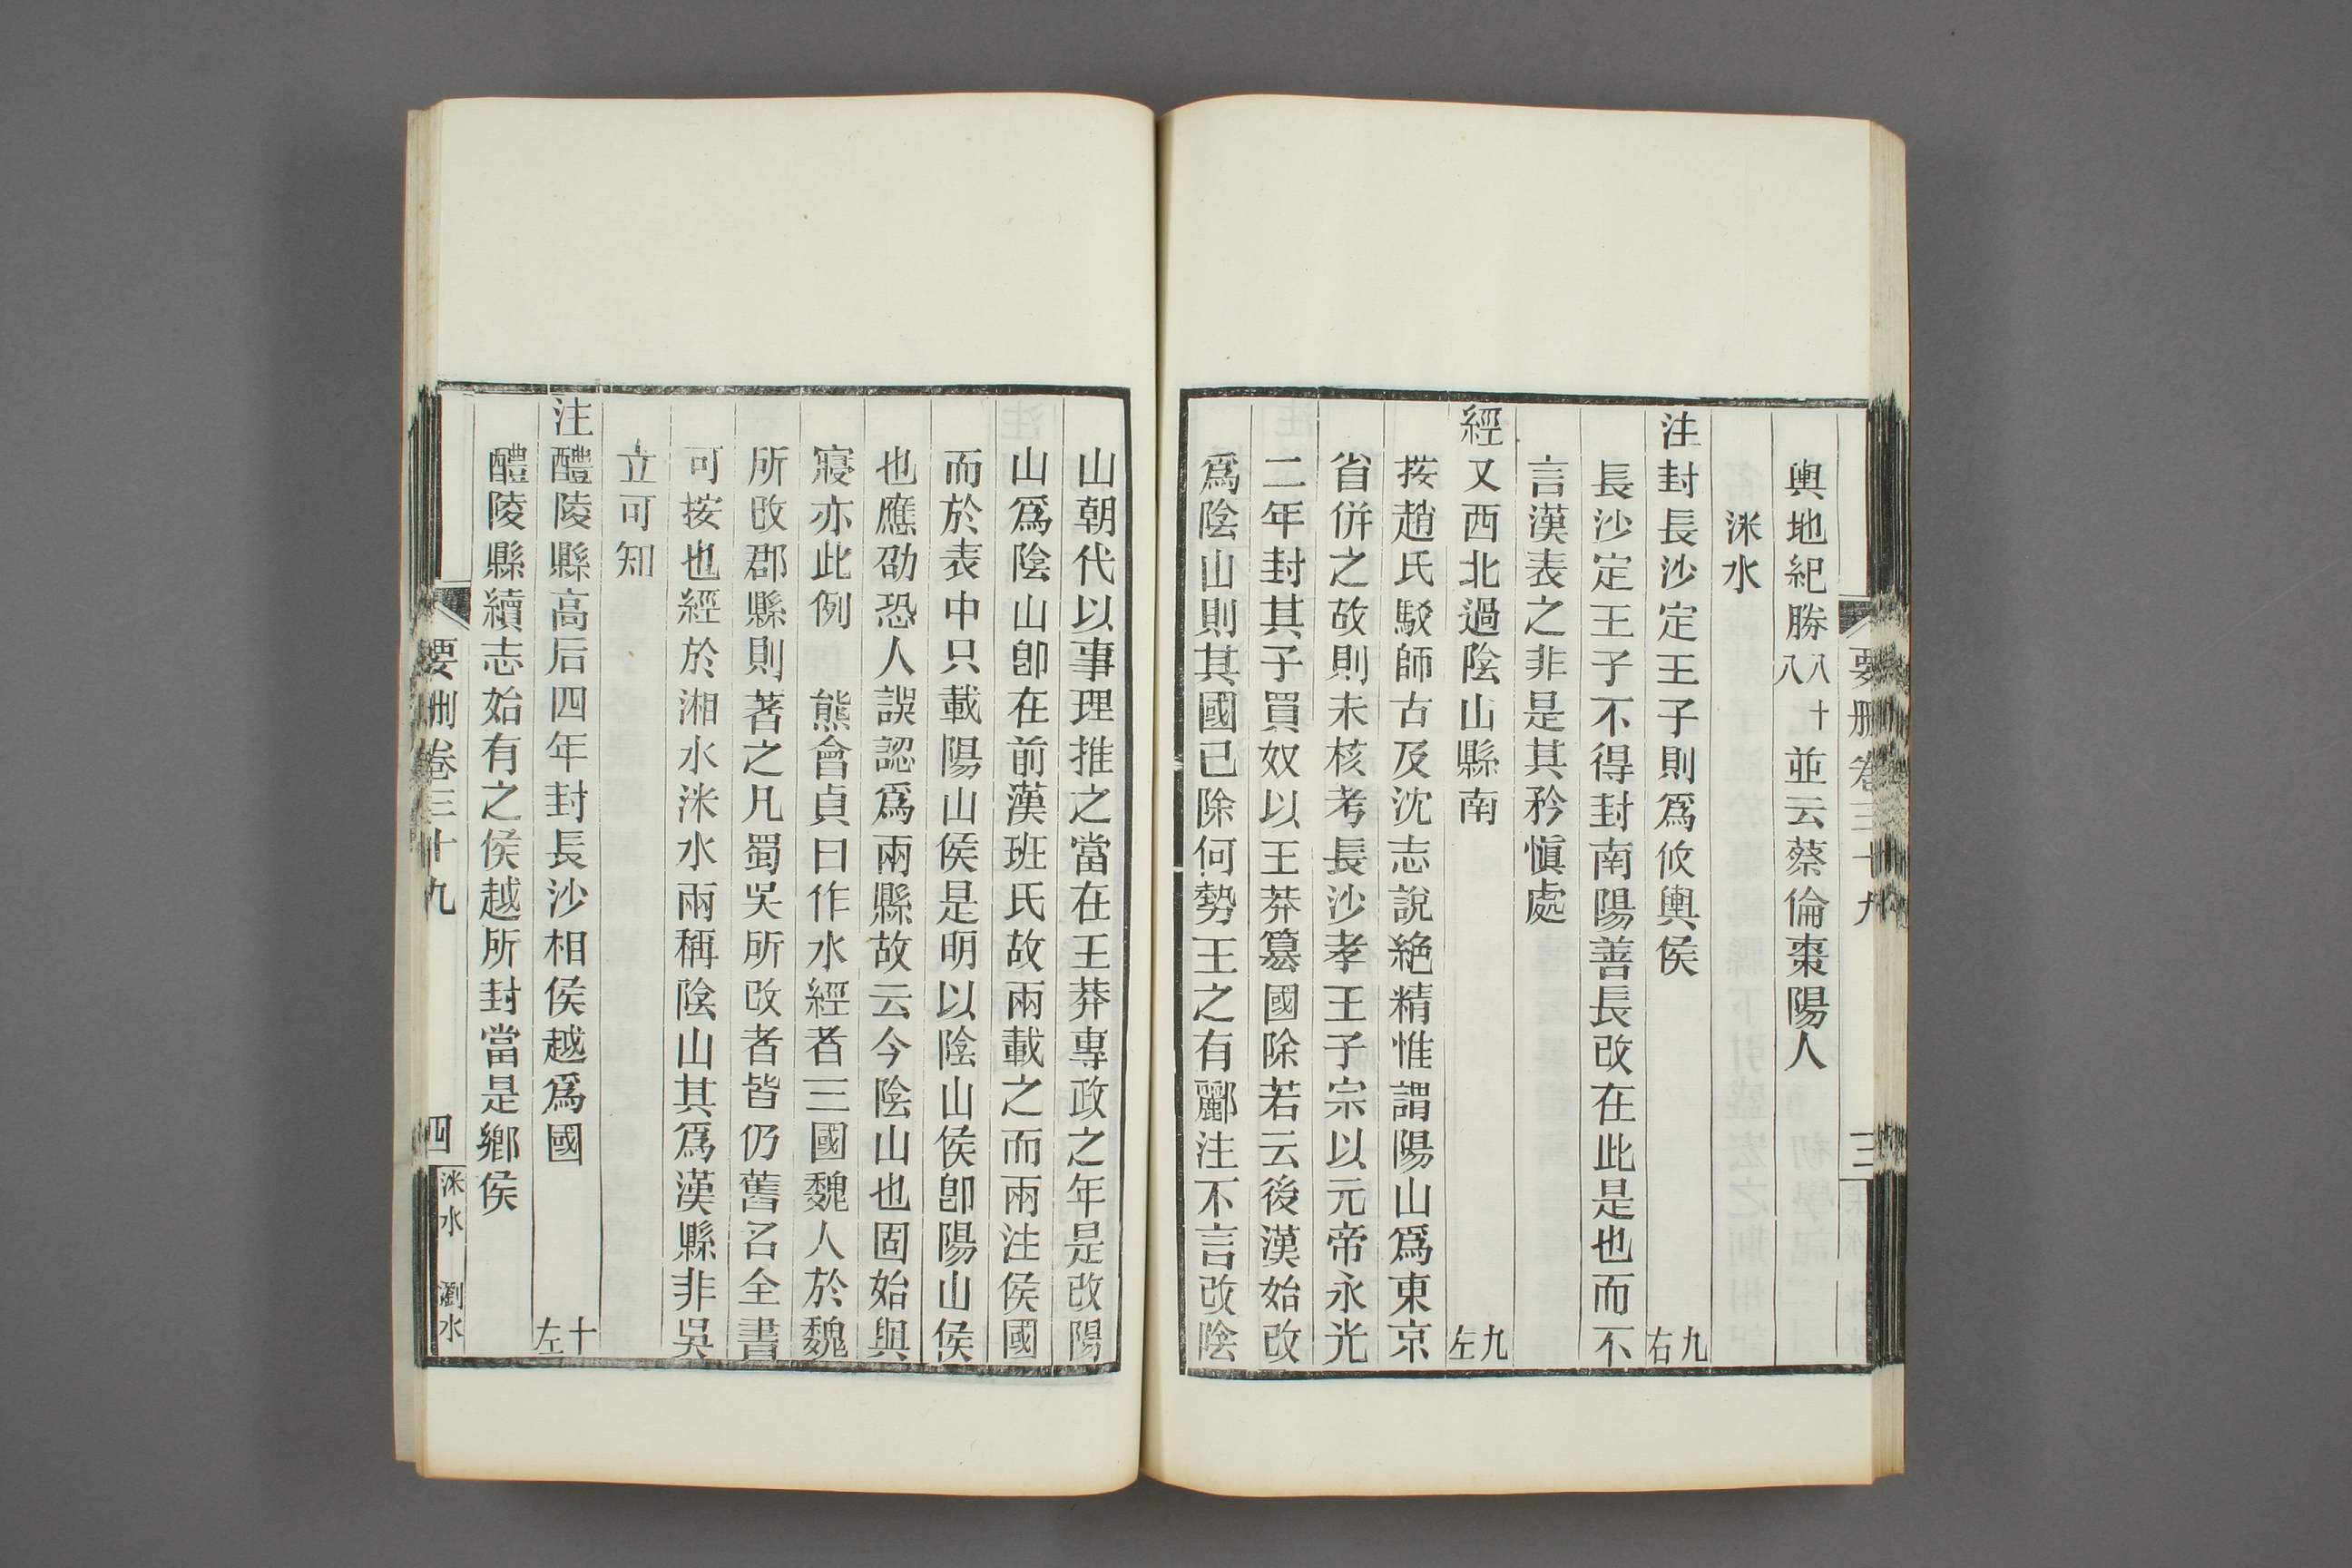 要刪卷三十九
三
輿地紀勝八十八並云蔡倫棗陽人
洣水
注封長沙定王子則爲攸輿侯 九右
長沙定王子不得封南陽善長改在此是也而不
言漢表之非是其矜愼處
經又西北過陰山縣南 九左
按趙氏駁師古及沈志說絶精惟謂陽山爲東京
省併之故則未核考長沙孝王子宗以元帝永光
二年封其子買奴以王莽篡國除若云後漢始改
爲陰山則其國已除何勢王之有酈注不言改陰
山朝代以事理推之當在王莽專政之年是改陽
山爲陰山卽在前漢班氏故兩載之而兩注侯國
而於表中只載陽山侯是明以陰山侯卽陽山侯
也應劭恐人誤認爲兩縣故云今陰山也固始與
寢亦此例 熊會貞曰作水經者三國魏人於魏
所改郡縣則著之凡蜀吳所改者皆仍舊名全書
可按也經於湘水洣水兩稱陰山其爲漢縣非吳
立可知
注醴陵縣高后四年封長沙相侯越爲國 十左
醴陵縣續志始有之侯越所封當是鄉侯
要刪卷三十九
四
洣水 瀏水